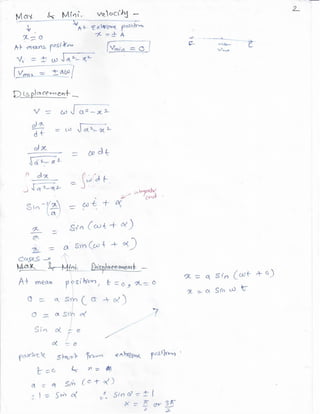 2
Max & Mini. velocity -
x = 0
At extreme position
x = ± A
At mean position
Vmin = 0
V = ± ω √a² - x²
Vmax = ± aω
Displacement -
V = ω √a² - x²
dx/dt = ω √a² - x²
dx/√a² - x² = ω dt
∫ dx/√a² - x² = ∫ ω dt
Sin⁻¹(x/a) = ωt + α
x/a = Sin (ωt + α)
x = a Sin(ωt + α)
Cases -
Max & Mini. Displacement -
At mean position, t = 0, x = 0
0 = a Sin (0 + α)
0 = a Sin α
Sin α = 0
α = 0
x = a Sin (ωt + 0)
x = a Sin ωt
particle start from extreme position -
t = 0 &
a = a Sin (0 + α)
Sin α = ± 1
α = π/2 or 3π/2